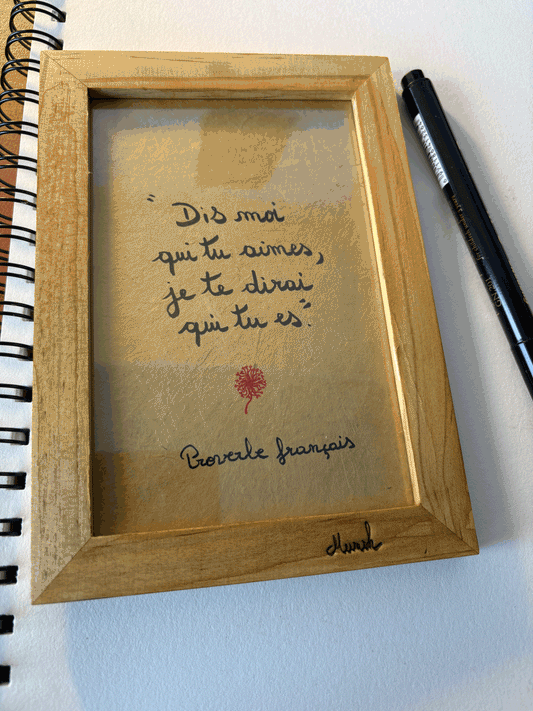 " Dis moi
qui tu aimes,
je te dirai
qui tu es".
Proverbe français